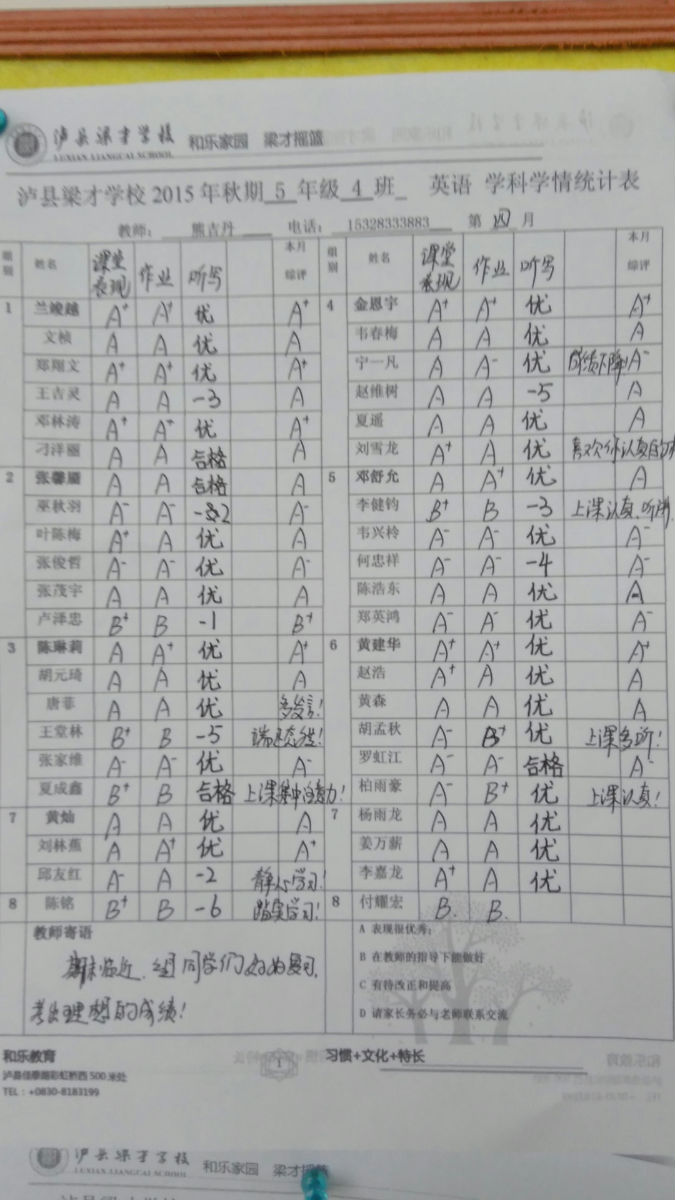 泸县梁才学校 和乐家园 梁才摇篮
LUXIAN LIANGCAI SCHOOL
泸县梁才学校 2015 年秋期 5 年级 4 班 英语 学科学情统计表
教师： 熊吉丹 电话： 15328333883 第 四 月
组别 姓名 课堂表现 作业 听写 本月综评 组别 姓名 课堂表现 作业 听写 本月综评
1 兰竣越 A+ A+ 优 A+ 4 金恩宇 A+ A+ 优 A+
文桢 A A 优 A 韦春梅 A A 优 A
郑翔文 A+ A+ 优 A+ 宁一凡 A A- 优 成绩下降! A-
王吉灵 A A -3 A 赵维树 A A -5 A
邓林涛 A+ A+ 优 A+ 夏遥 A A 优 A
刁洋丽 A A 合格 A 刘雪龙 A+ A 优 喜欢你认真的
2 张馨月 A A 合格 A 5 邓舒允 A A+ 优 A
巫秋羽 A- A- -2 A- 李健钧 B+ B -3 上课认真听
叶陈梅 A+ A 优 A 韦兴柃 A- A- 优 A-
张俊哲 A- A- 优 A- 何忠祥 A- A- -4 A-
张茂宇 A A 优 A 陈浩东 A A 优 A
卢泽忠 B+ B -1 B+ 郑英鸿 A- A- 优 A-
3 陈琳莉 A A+ 优 A+ 6 黄建华 A+ A+ 优 A+
胡元琦 A A 优 A 赵浩 A+ A 优 A
唐菲 A A 优 多发言! 黄森 A A 优 A
王堂林 B+ B -5 端正态度! 胡孟秋 A- B+ 优 上课多听!
张家维 A- A- 优 A- 罗虹江 A- A- 合格 A-
夏成鑫 B+ B 合格 上课集中注意力! 柏雨豪 A- B+ 优 上课认真!
7 黄灿 A A 优 A 7 杨雨龙 A A 优
刘林蕉 A A+ 优 A+ 姜万薪 A A 优
邱友红 A- A -2 静心学习! 李嘉龙 A+ A 优
8 陈铭 B+ B -6 踏实学习! 8 付耀宏 B. B.
教师寄语
期末临近，望同学们好好复习，
考出理想的成绩!
A 表现很优秀；
B 在教师的指导下能做好
C 有待改正和提高
D 请家长务必与老师联系交流
和乐教育 1 习惯+文化+特长
泸县佳泰路彩虹桥西 500 米处
TEL：+0830-8183199
泸县梁才学校 和乐家园 梁才摇篮
LUXIAN LIANGCAI SCHOOL